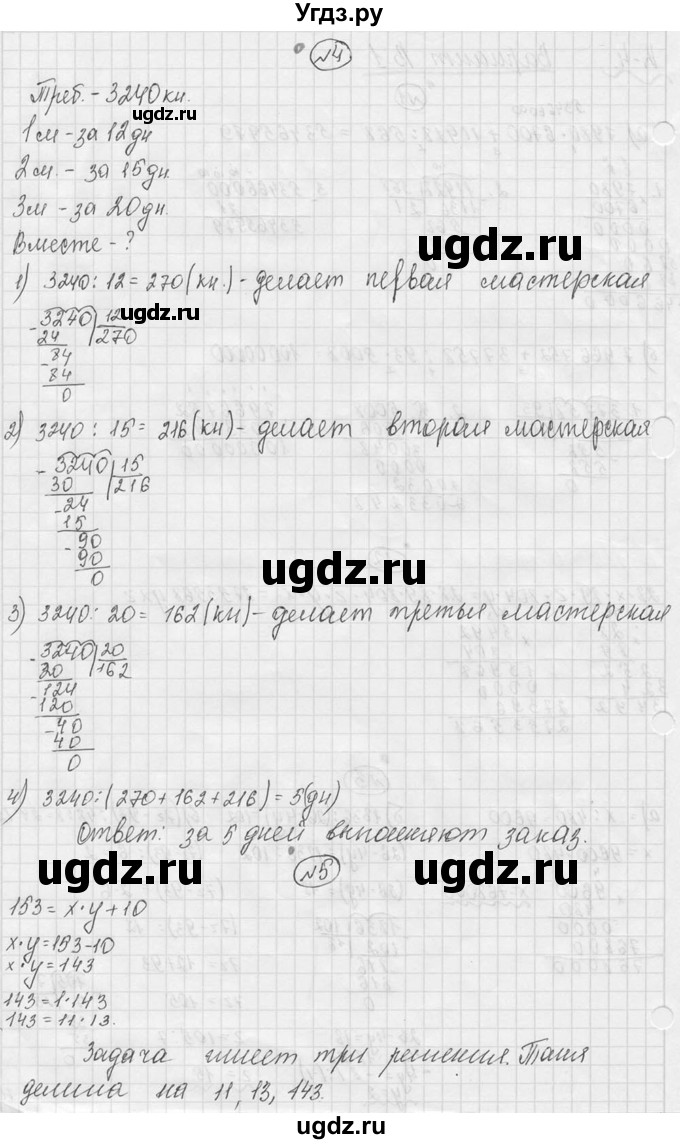 Угдз.ру
№4
Треб. - 3240 кн.
1м - за 12 дн
2м. - за 15 дн.
3м - за 20 дн.
Вместе - ?
1) 3240 : 12 = 270 (кн.) - делает первая мастерская
- 3240 | 12
24 | 270
- 84
84
0
2) 3240 : 15 = 216 (кн) - делает вторая мастерская
- 3240 | 15
30 | 216
- 24
15
- 90
90
0
3) 3240 : 20 = 162 (кн) - делает третья мастерская
- 3240 | 20
20 | 162
- 124
120
- 40
40
0
4) 3240 : (270 + 162 + 216) = 5 (дн)
Ответ: за 5 дней выполняют заказ.
№5
153 = x · y + 10
x · y = 153 - 10
x · y = 143
143 = 1 · 143
143 = 11 · 13.
Задача имеет три решения. Таня
делила на 11, 13, 143.
ugdz.ru
ugdz.ru
ugdz.ru
ugdz.ru
ugdz.ru
ugdz.ru
ugdz.ru
ugdz.ru
ugdz.ru
ugdz.ru
ugdz.ru